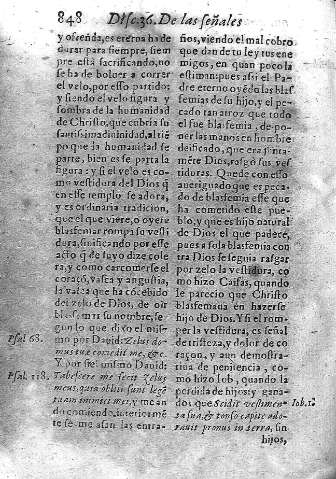 848 Disc.36. De las señales
y ofrenda, es eterna ha de
durar para siempre, siem
pre està sacrificando, no
se ha de boluer a correr
el velo, por esso partido:
y siendo el velo figura y
sombra de la humanidad
de Christo, que cubria su
santissima diuinidad, al tiẽ
po que la humanidad se
parte, bien es se parta la
figura: y si el velo es co-
mo vestidura del Dios q̃
en esse templo se adora,
y es ordinaria tradicion,
que el que viere, o oyere
blasfemar rompa su vesti
dura, sinificando por esse
acto q̃ de suyo dize cole
ra, y como carcomerse el
coraçõ, vasca y angustia,
la vasca que ha cõcebido
del zelo de Dios, de oir
blasfemar su nombre, se-
gun lo que dixo el mis-
mo por Dauid: Zelus do-
mus tuæ comedit me, &c.
Y por esse mismo Dauid:
Tabescere me fecit zelus
meus, quia obliti sunt
inimici mei, y mean
do comiendo, interiormẽ
te se me asan las entra-
Psal. 68.
Psal. 118.
ños, viendo el mal cobro
que dan de tu ley tus ene
migos, en quan poco la
estiman: pues assi el Pa-
dre eterno oyẽdo las blas
femias de su hijo, y el pe-
cado tan atroz que todo
el fue blasfemia, de po-
ner las manos en hombre
deificado, que era jũta-
mẽte Dios, rasgó sus ves
tiduras. Quede con esso
aueriguado que es peca-
do de blasfemia esse que
ha cometido esse pue-
blo, y que es hijo natural
de Dios el que padece,
pues a sola blasfemia con
tra Dios se seguia rasgar
por zelo la vestidura, co
mo hizo Caifas, quando
le parecio que Christo
blasfemaua en hazerse
hijo de Dios. Y si el rom-
per la vestidura, es señal
de tristeza, y dolor de co
raçon, y aun demostra-
tiua de penitencia, co-
mo hizo Iob, quando la
perdida de hijos y gana-
dos que Scidit vestimen-
ta sua, & tonso capite ado-
rauit pronus in terra, sin
hijos,
Iob. 1.